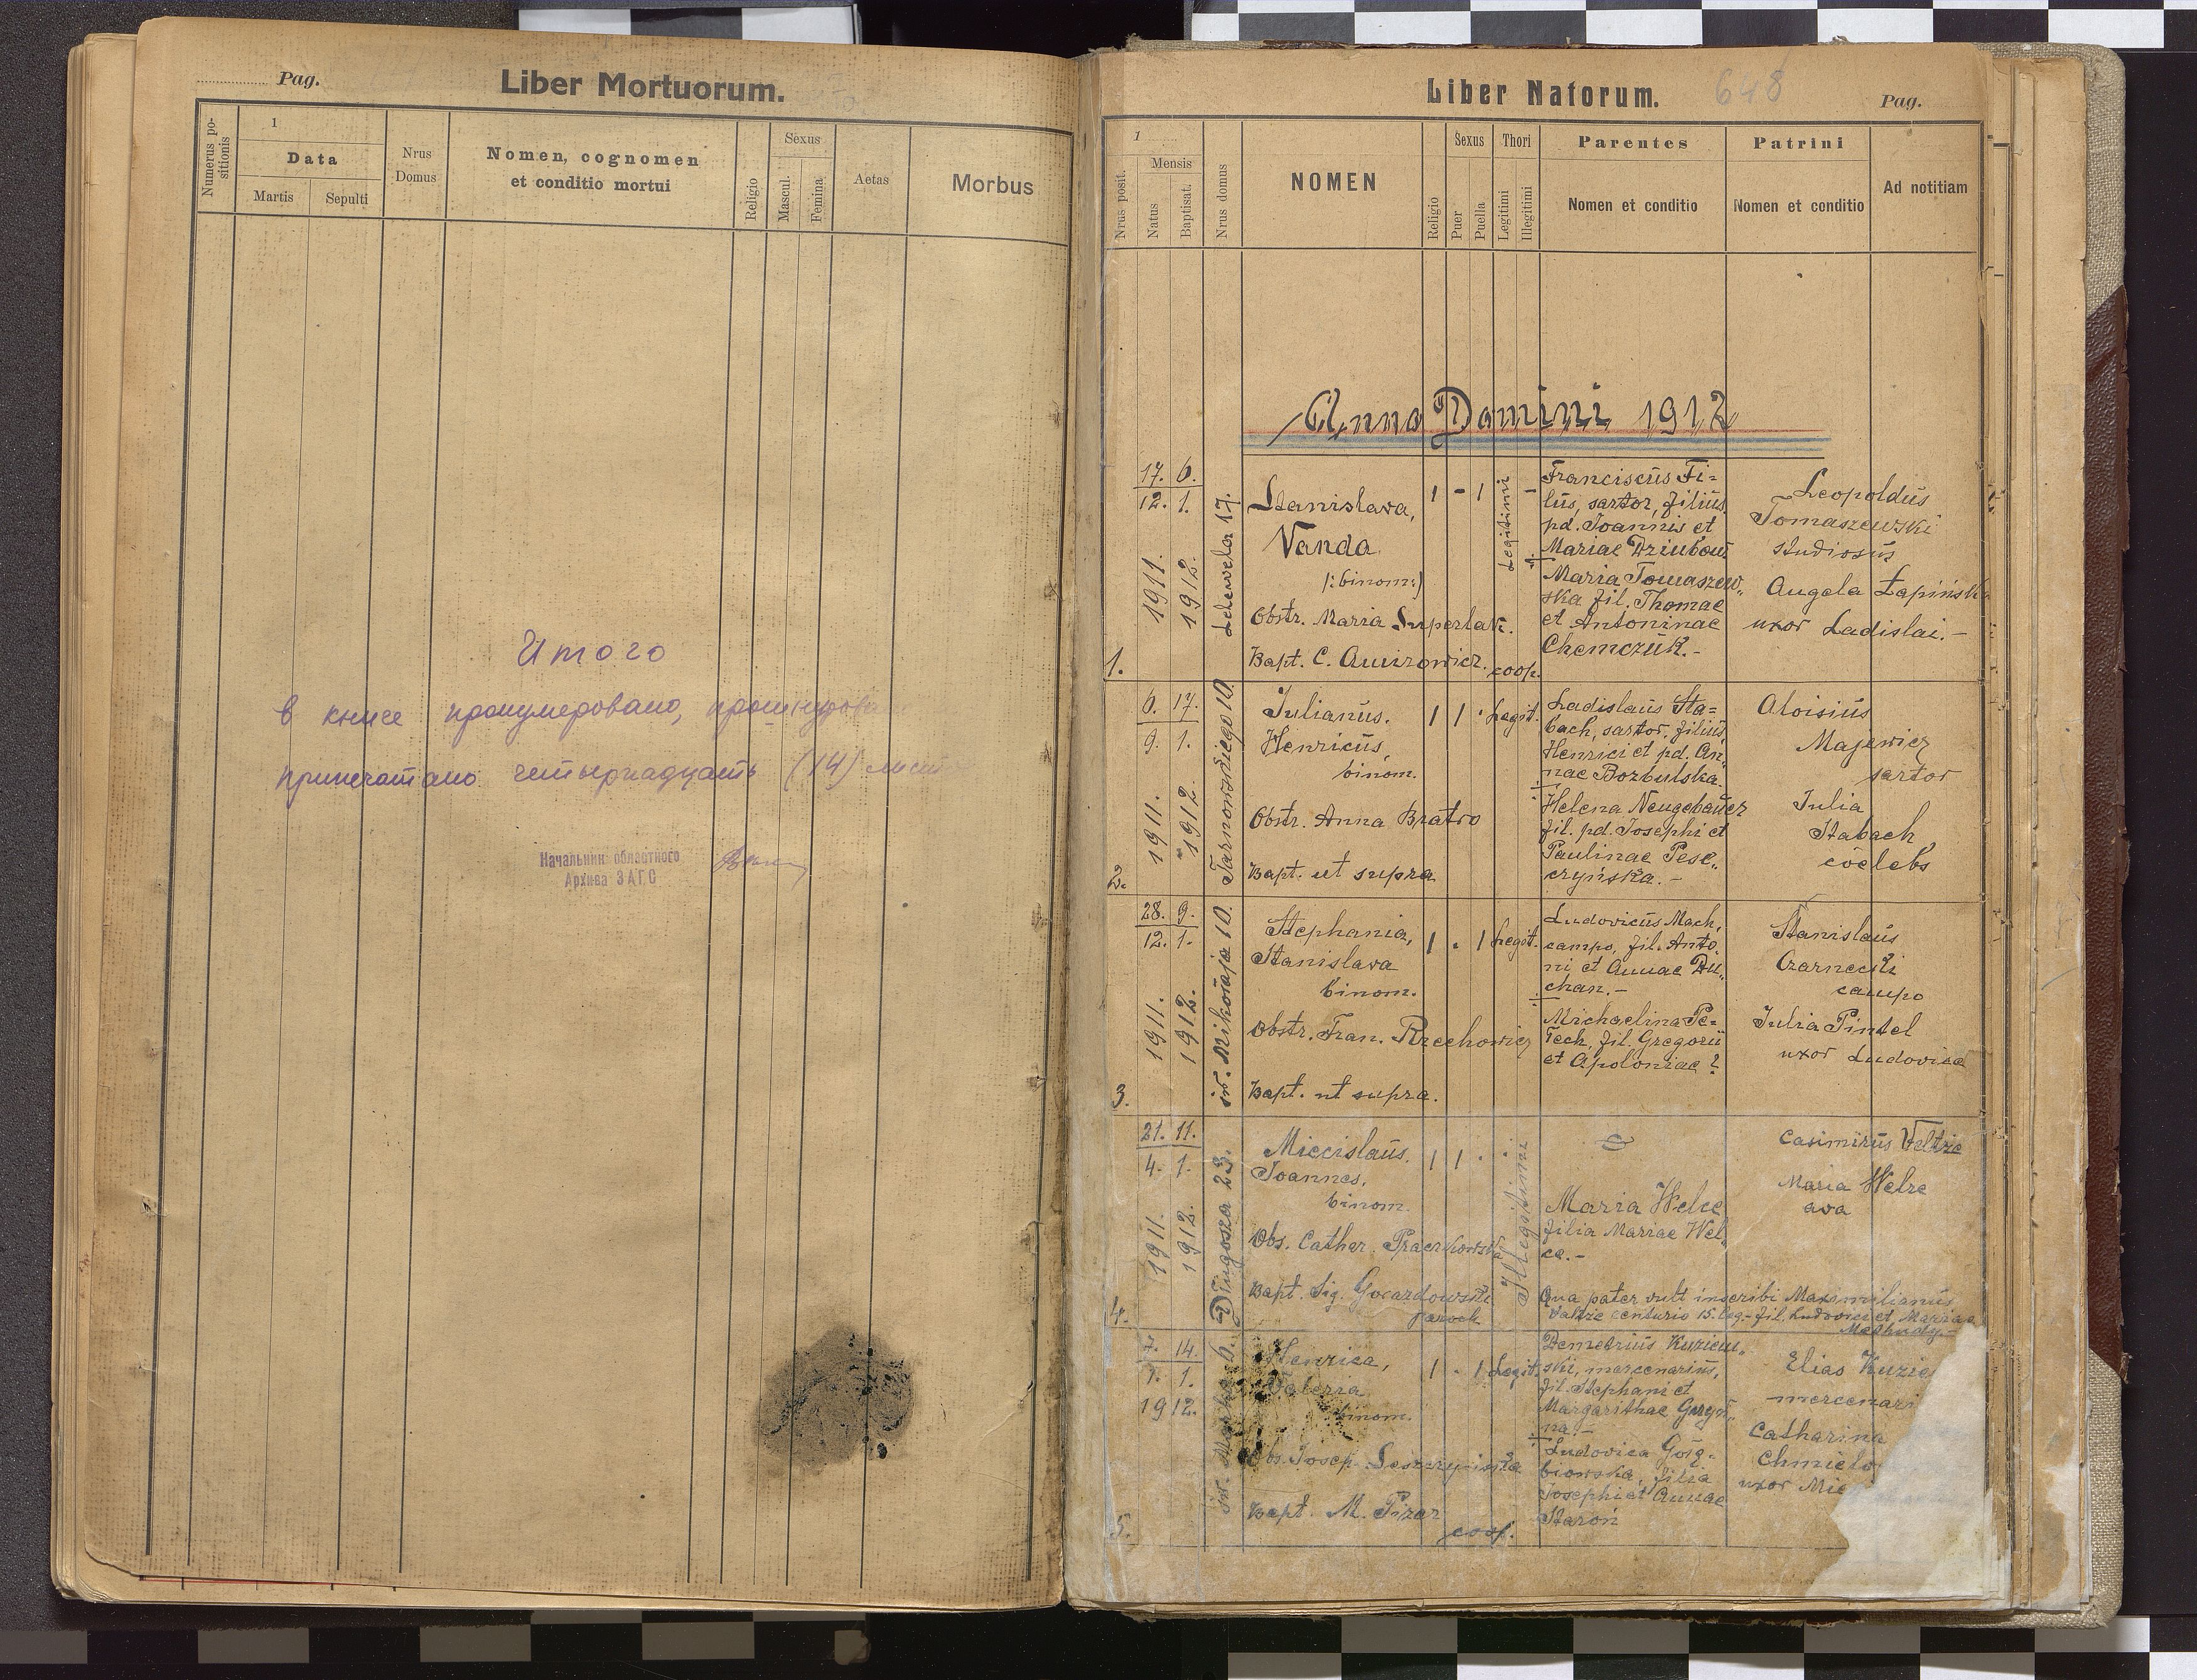 Pag.
Liber Mortuorum.
Numerus po-
sitionis
1
Data
Martis
Sepulti
Nrus
Domus
Nomen, cognomen
et conditio mortui
Religio
Sexus
Mascul.
Femina
Aetas
Morbus
Итого
в книге пронумеровано, прошнурова
припечатано четырнадцать (14) лист
Начальник областного
Архива ЗАГС
Liber Natorum.
648
Pag.
Nrus posit.
1
Mensis
Natus
Baptisat.
Nrus domus
NOMEN
Religio
Sexus
Puer
Puella
Thori
Legitimi
Illegitimi
Parentes
Nomen et conditio
Patrini
Nomen et conditio
Ad notitiam
Anno Domini 1912
1.
17. 6.
12. 1.
1911. 1912.
Lelewela 17.
Stanislava,
Vanda
/:binom:/
Obstr. Maria Superlak.
Bapt. C. coop.
1 - 1
Legitimi
Franciscus Fi=
lus, sartor, filius
pd. Joannis et
Mariae
Maria Tomaszew„
ska fil. Thomae
et Antoninae
Chemczuk.-
Leopoldus
Tomaszewski
studiosus
Angela Łapińska
uxor Ladislai.-
2.
6. 17.
9. 1.
1911. 1912
Tarnowskiego 10.
Julianus.
Henricus,
binom.
Obstr. Anna Bratro
Bapt. ut supra
1 1 · Legit.
Ladislaus Sta=
bach, sartor, filius
Henrici et pd. An„
nae Borbulska.
Helena Neugebauer
fil. pd. Josephi et
Paulinae Pesc„
zyńska.-
Aloisius
Majewicz
sartor
Julia
Stabach
coelebs
3.
28. 9.
12. 1.
1911. 1912.
św. Mikołaja 10.
Stephania,
Stanislava
binom.
Obstr. Fran. Rzechowicz
Bapt. ut supra.
1 . 1 Legit.
Ludovicus Mach,
campo, fil. Anto„
ni et Annae Du„
chan.-
Michaelina Pe=
tech, fil. Gregorii
et Apoloniae ?
Stanislaus
Czarnecki
campo
Julia Pintel
uxor Ludovica
4.
21. 11.
4. 1.
1911. 1912.
Długosza 23.
Miecislaus.
Joannes,
binom.
Obs. Cather.
Bapt. Sig. Gorazdowski
paroch
1 1 .
Illegitimi
Maria Welce
filia Mariae Wel„
ce.-
Qua pater vult inscribi Maxmilianus
centurio 15. leg.- fil. Ludovici et Mariae
Casimirus Veltze
Maria Welze
ava
5.
7. 14.
1. 1.
1912.
6.
Henrica,
Valeria
binom.
Obs. Josep.
Bapt. M. Pizar
coop.
1 . 1 Legit.
Demetrius Kuziem„
ski, mercenarius,
fil. Stephani et
Margarithae
na.-
Ludovica Gołę-
biowska, filia
Josephi et Annae
Staroń
Elias Kuzie
mercenari
Catharina
Chmielo
uxor Mic